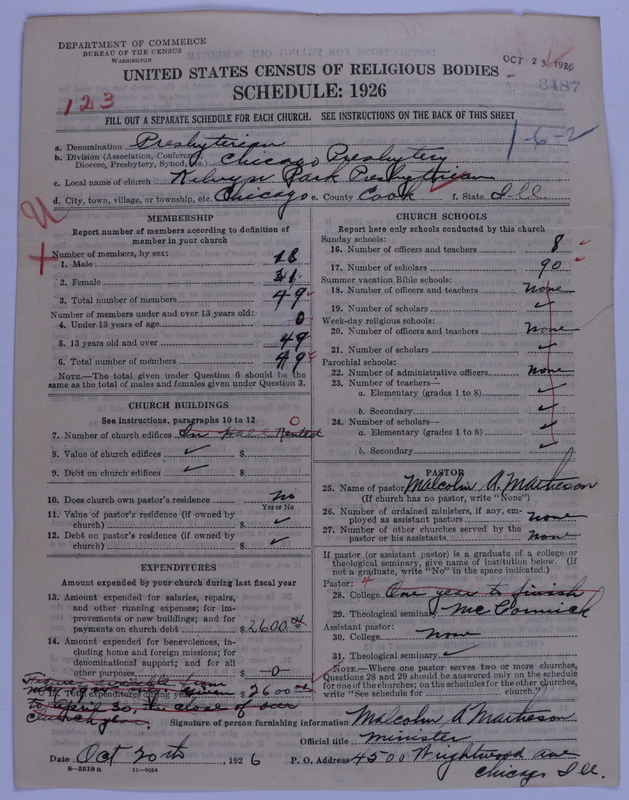 DEPARTMENT OF COMMERCE
BUREAU OF THE CENSUS
WASHINGTON
OCT 23 1926
UNITED STATES CENSUS OF RELIGIOUS BODIES
3487
SCHEDULE: 1926
123
FILL OUT A SEPARATE SCHEDULE FOR EACH CHURCH. SEE INSTRUCTIONS ON THE BACK OF THIS SHEET
1-6-2
a. Denomination Presbyterian
b. Division (Association, Conference, Diocese, Presbytery, Synod, etc.) Chicago Presbytery
c. Local name of church Kelvyn Park Presbyterian
d. City, town, village, or township, etc. Chicago e. County Cook f. State Ill
MEMBERSHIP
Report number of members according to definition of
member in your church
Number of members, by sex:
1. Male 18
2. Female 31
3. Total number of members 49
Number of members under and over 13 years old:
4. Under 13 years of age 0
5. 13 years old and over 49
6. Total number of members 49
NOTE.—The total given under Question 6 should be the
same as the total of males and females given under Question 3.
CHURCH BUILDINGS
See instructions, paragraphs 10 to 12
7. Number of church edifices Rented 0
8. Value of church edifices $
9. Debt on church edifices $
10. Does church own pastor's residence No
Yes or No
11. Value of pastor's residence (if owned by
church) $
12. Debt on pastor's residence (if owned by
church) $
EXPENDITURES
Amount expended by your church during last fiscal year
13. Amount expended for salaries, repairs,
and other running expenses; for im-
provements or new buildings; and for
payments on church debt $2600.00
14. Amount expended for benevolences, in-
cluding home and foreign missions; for
denominational support; and for all
other purposes $ —0—
15. Total expenditures during year $2600.00
to April 30, the close of our
church year.
CHURCH SCHOOLS
Report here only schools conducted by this church
Sunday schools:
16. Number of officers and teachers 8
17. Number of scholars 90
Summer vacation Bible schools:
18. Number of officers and teachers None
19. Number of scholars
Week-day religious schools:
20. Number of officers and teachers None
21. Number of scholars
Parochial schools:
22. Number of administrative officers None
23. Number of teachers—
a. Elementary (grades 1 to 8)
b. Secondary
24. Number of scholars—
a. Elementary (grades 1 to 8)
b. Secondary
PASTOR
25. Name of pastor Malcolm A. Matheson
(If church has no pastor, write "None")
26. Number of ordained ministers, if any, em-
ployed as assistant pastors None
27. Number of other churches served by the
pastor or his assistants None
If pastor (or assistant pastor) is a graduate of a college or
theological seminary, give name of institution below. (If
not a graduate, write "No" in the space indicated.)
Pastor: 4
28. College One year to finish
29. Theological seminary McCormick
Assistant pastor:
30. College None
31. Theological seminary
NOTE.—Where one pastor serves two or more churches,
Questions 28 and 29 should be answered only on the schedule
for one of the churches; on the schedules for the other churches,
write "See schedule for church."
Signature of person furnishing information Malcolm A Matheson
Official title Minister
Date Oct 20th, 1926 P. O. Address 4500 Wrightwood Ave
Chicago Ill.
8—5518a 11—9564